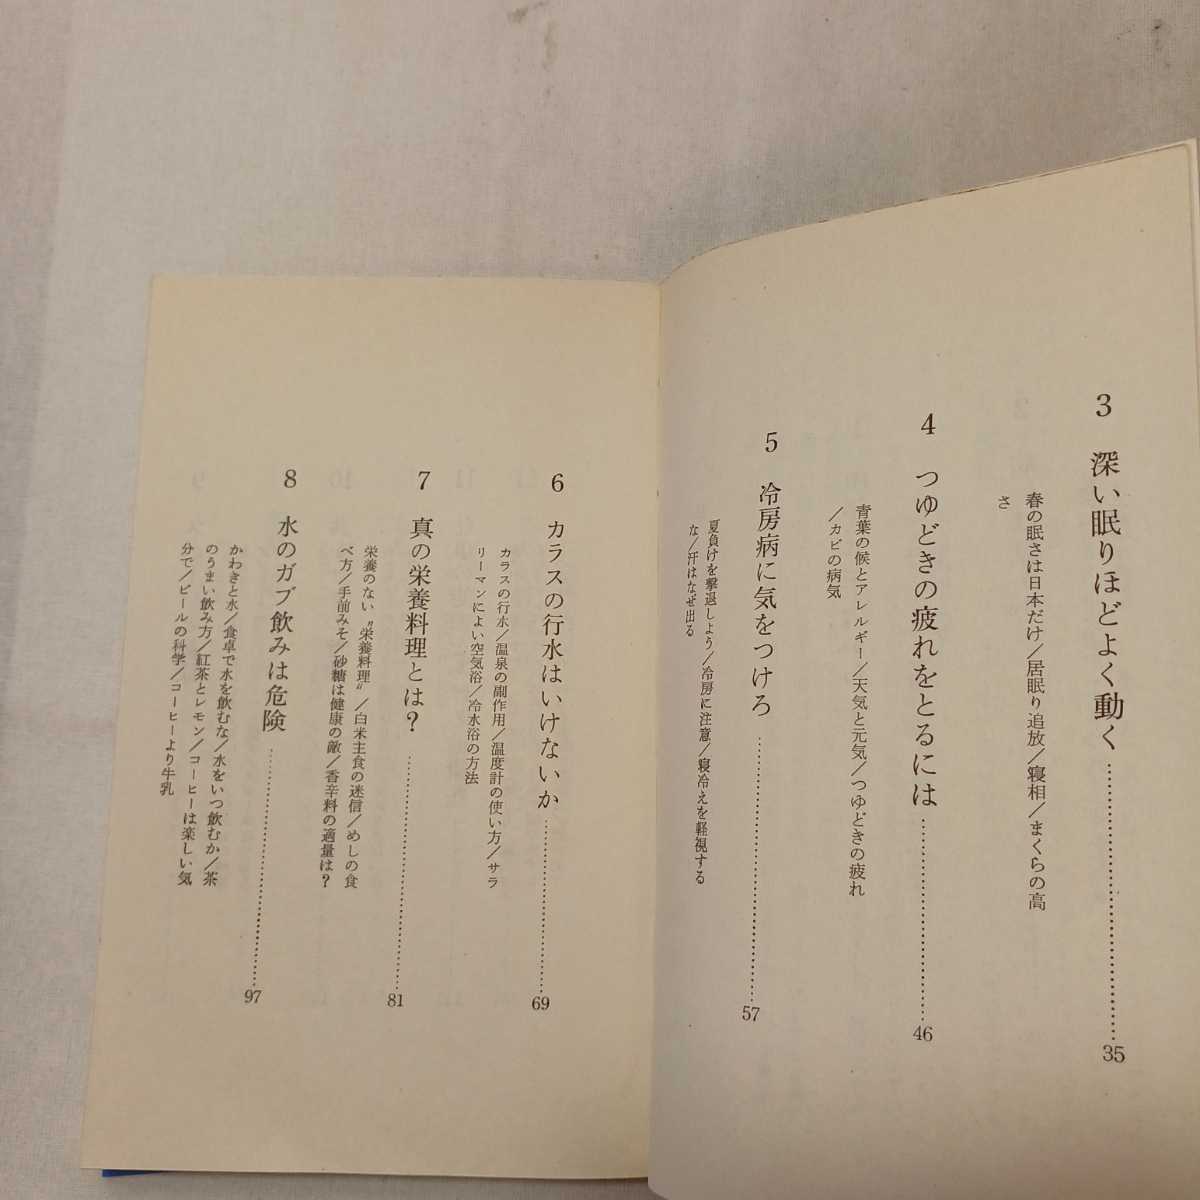 3　深い眠りほどよく動く……………………35
春の眠さは日本だけ／居眠り追放／寝相／まくらの高
さ
4　つゆどきの疲れをとるには……………46
青葉の候とアレルギー／天気と元気／つゆどきの疲れ
／カビの病気
5　冷房病に気をつけろ……………………57
夏負けを撃退しよう／冷房に注意／寝冷えを軽視する
な／汗はなぜ出る
6　カラスの行水はいけないか……………69
カラスの行水／温泉の副作用／温度計の使い方／サラ
リーマンによい空気浴／冷水浴の方法
7　真の栄養料理とは？……………………81
栄養のない〝栄養料理〟／白米主食の迷信／めしの食
べ方／手前みそ／砂糖は健康の敵／香辛料の適量は？
8　水のガブ飲みは危険……………………97
かわきと水／食卓で水を飲むな／水をいつ飲むか／茶
のうまい飲み方／紅茶とレモン／コーヒーは楽しい気
分で／ビールの科学／コーヒーより牛乳